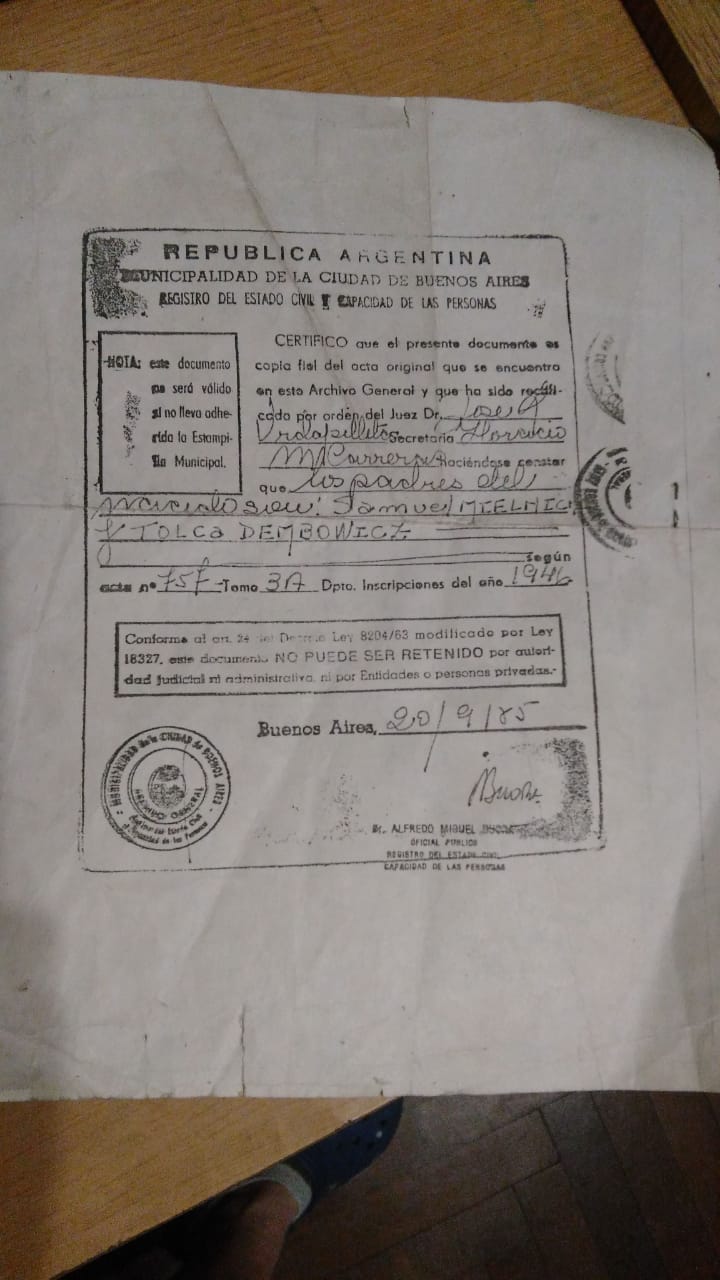 REPUBLICA ARGENTINA
MUNICIPALIDAD DE LA CIUDAD DE BUENOS AIRES
REGISTRO DEL ESTADO CIVIL Y CAPACIDAD DE LAS PERSONAS
NOTA: este documento
no será válido
si no lleva adhe-
rida la Estampi-
lla Municipal.
CERTIFICO que el presente documento es
copia fiel del acta original que se encuentra
en este Archivo General y que ha sido rectifi-
cada por orden del Juez Dr. Jose
Secretaría Horacio
M Carrera Haciéndose constar
que los padres del
son: Samuel MIELNIC
y TOLCA DEMBOWICZ
según
acta nº 757 Tomo 3A Dpto. Inscripciones del año 1946
Conforme al art. 24 del Decreto Ley 8204/63 modificado por Ley
18327, este documento NO PUEDE SER RETENIDO por autori-
dad judicial ni administrativa, ni por Entidades o personas privadas.-
Buenos Aires, 20/9/85
MUNICIPALIDAD de la CIUDAD de BUENOS AIRES
ARCHIVO GENERAL
Dr. ALFREDO MIGUEL
OFICIAL PUBLICO
REGISTRO DEL ESTADO CIVIL
CAPACIDAD DE LAS PERSONAS